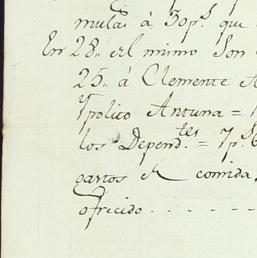 mulas à 30p.s que
En 28,, el mismo Son
25,, à Clemente A
Ypolito Antuna =
los Depend.tes = 7p.s 6
gastos de comida
ofrecido . . . . - - -